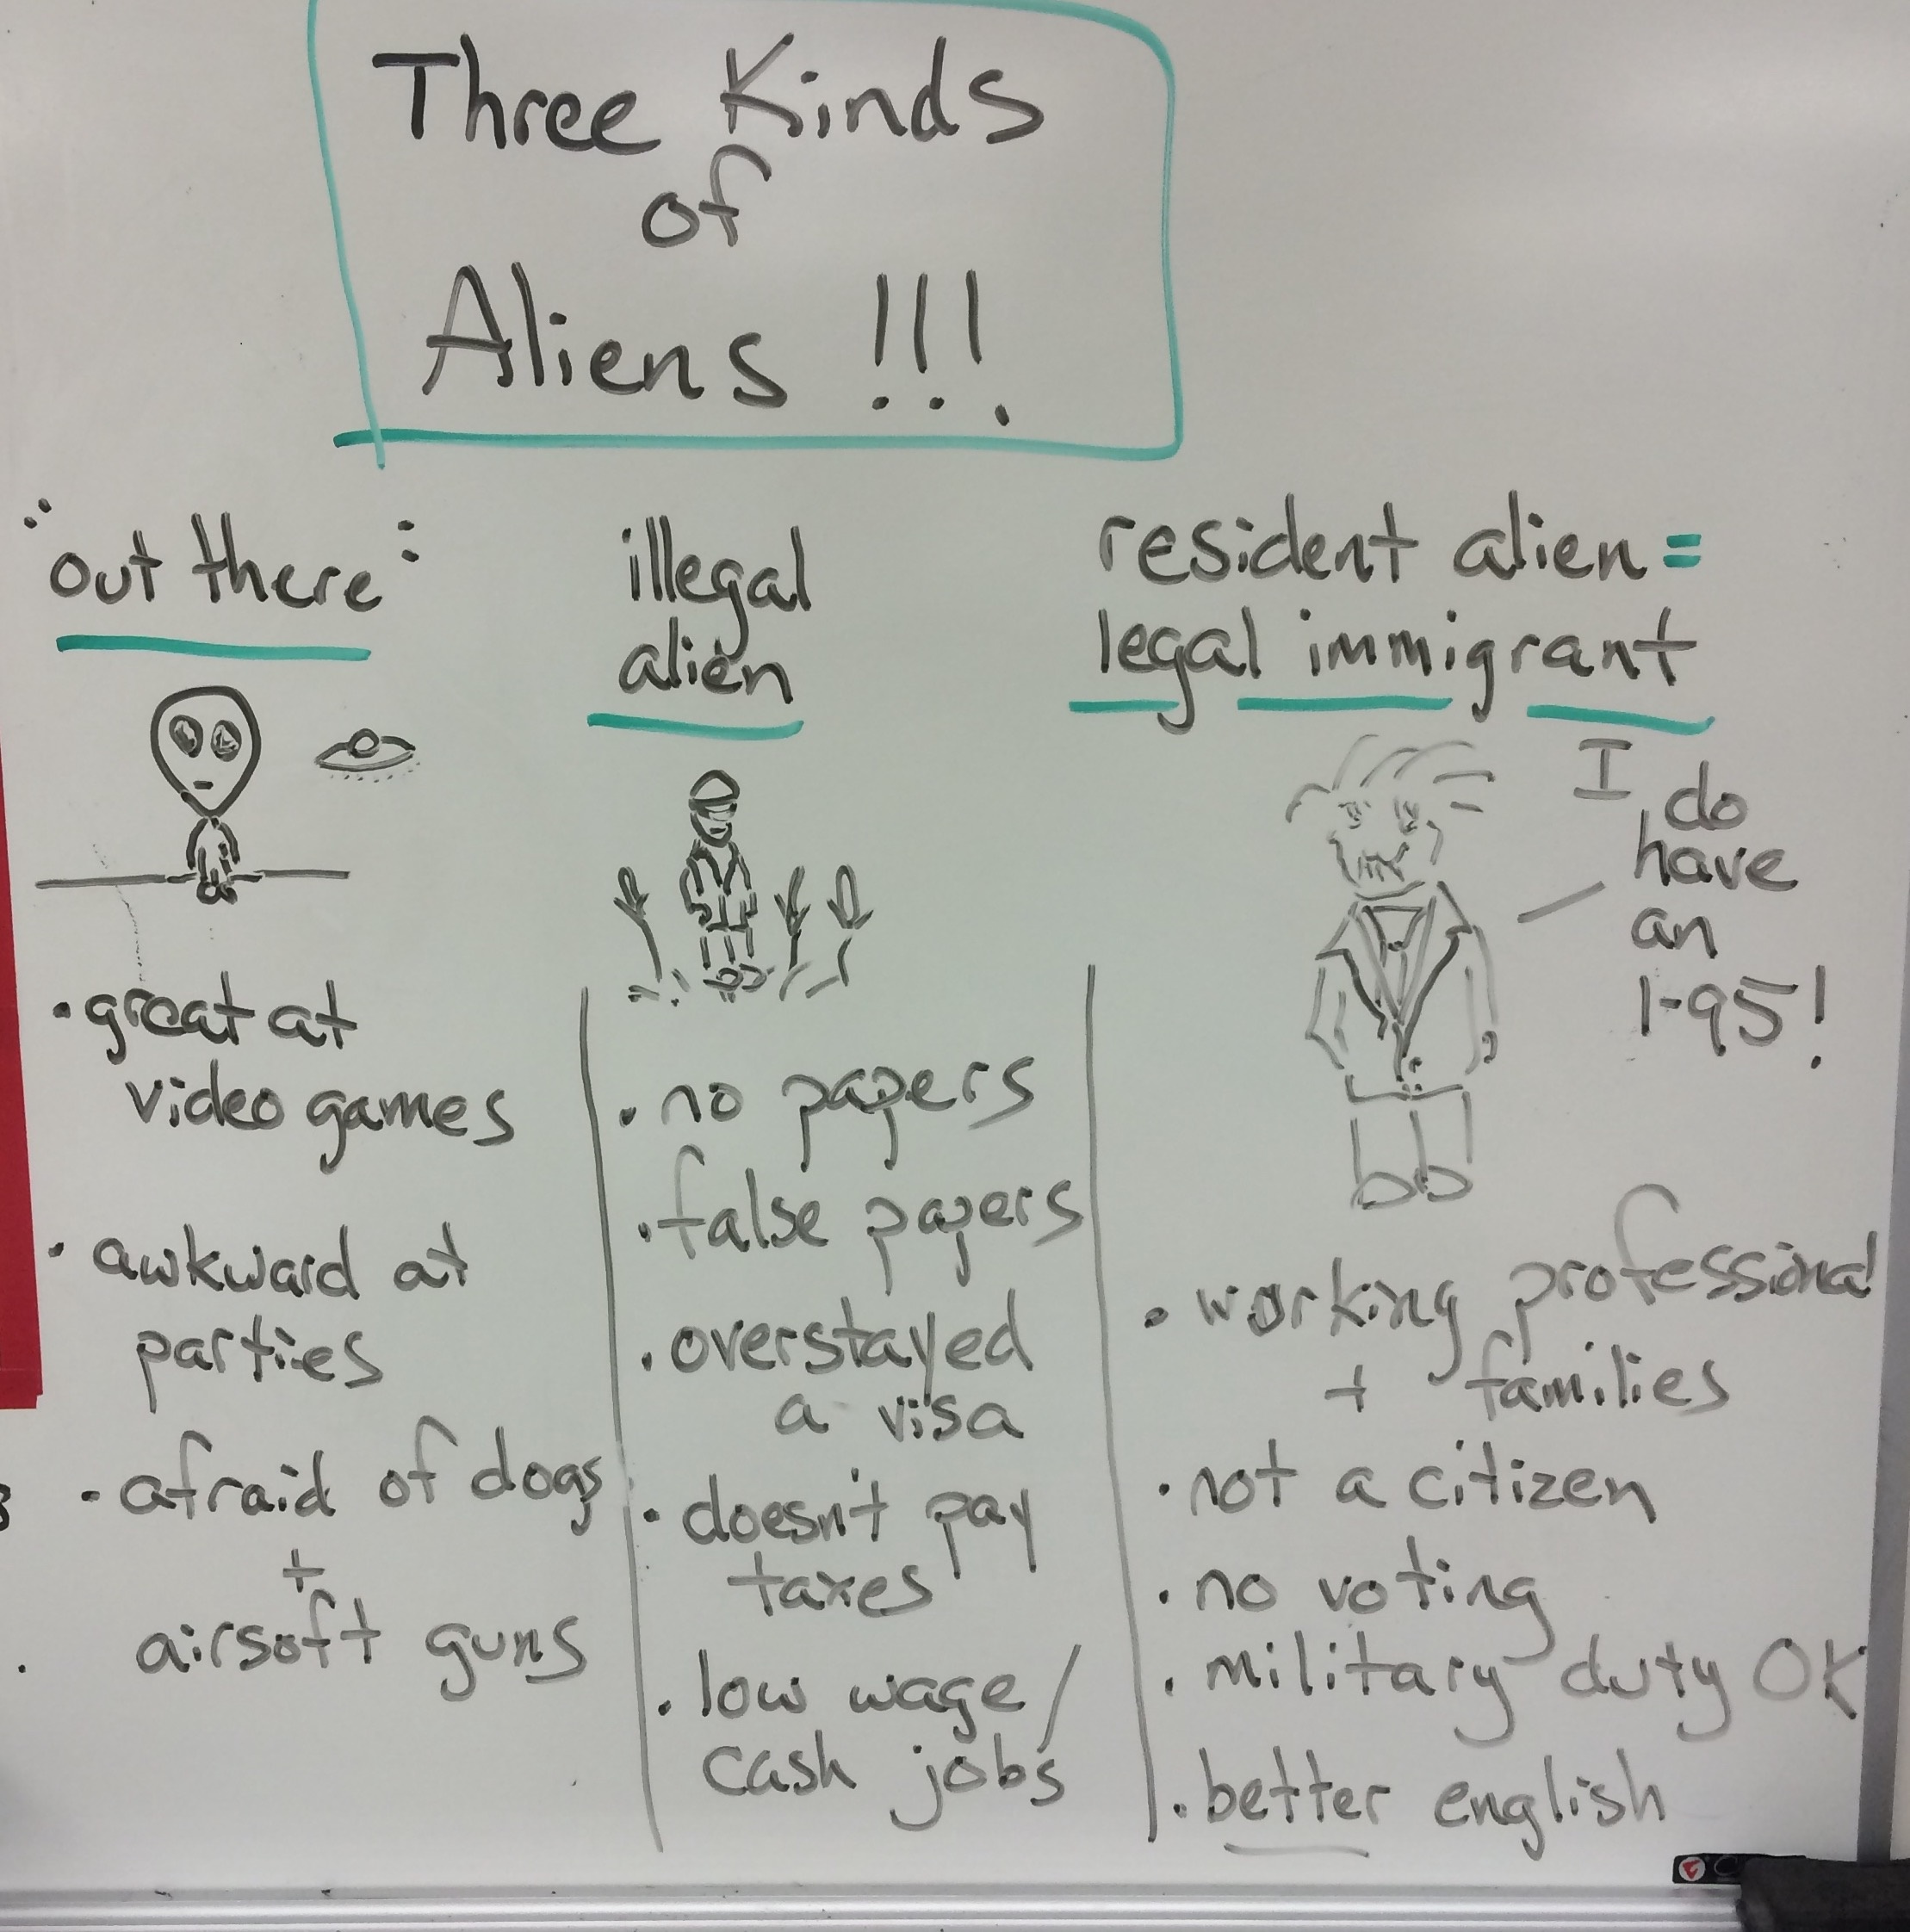 Three Kinds
of
Aliens !!!
"out there":
illegal
alien
resident alien =
legal immigrant
I do
have
an
I-95!
• great at
video games
• awkward at
parties
• afraid of dogs
+
airsoft guns
• no papers
• false papers
• overstayed
a visa
• doesn't pay
taxes
• low wage/
cash jobs
• working professional
+ families
• not a citizen
• no voting
• military duty OK
• better english